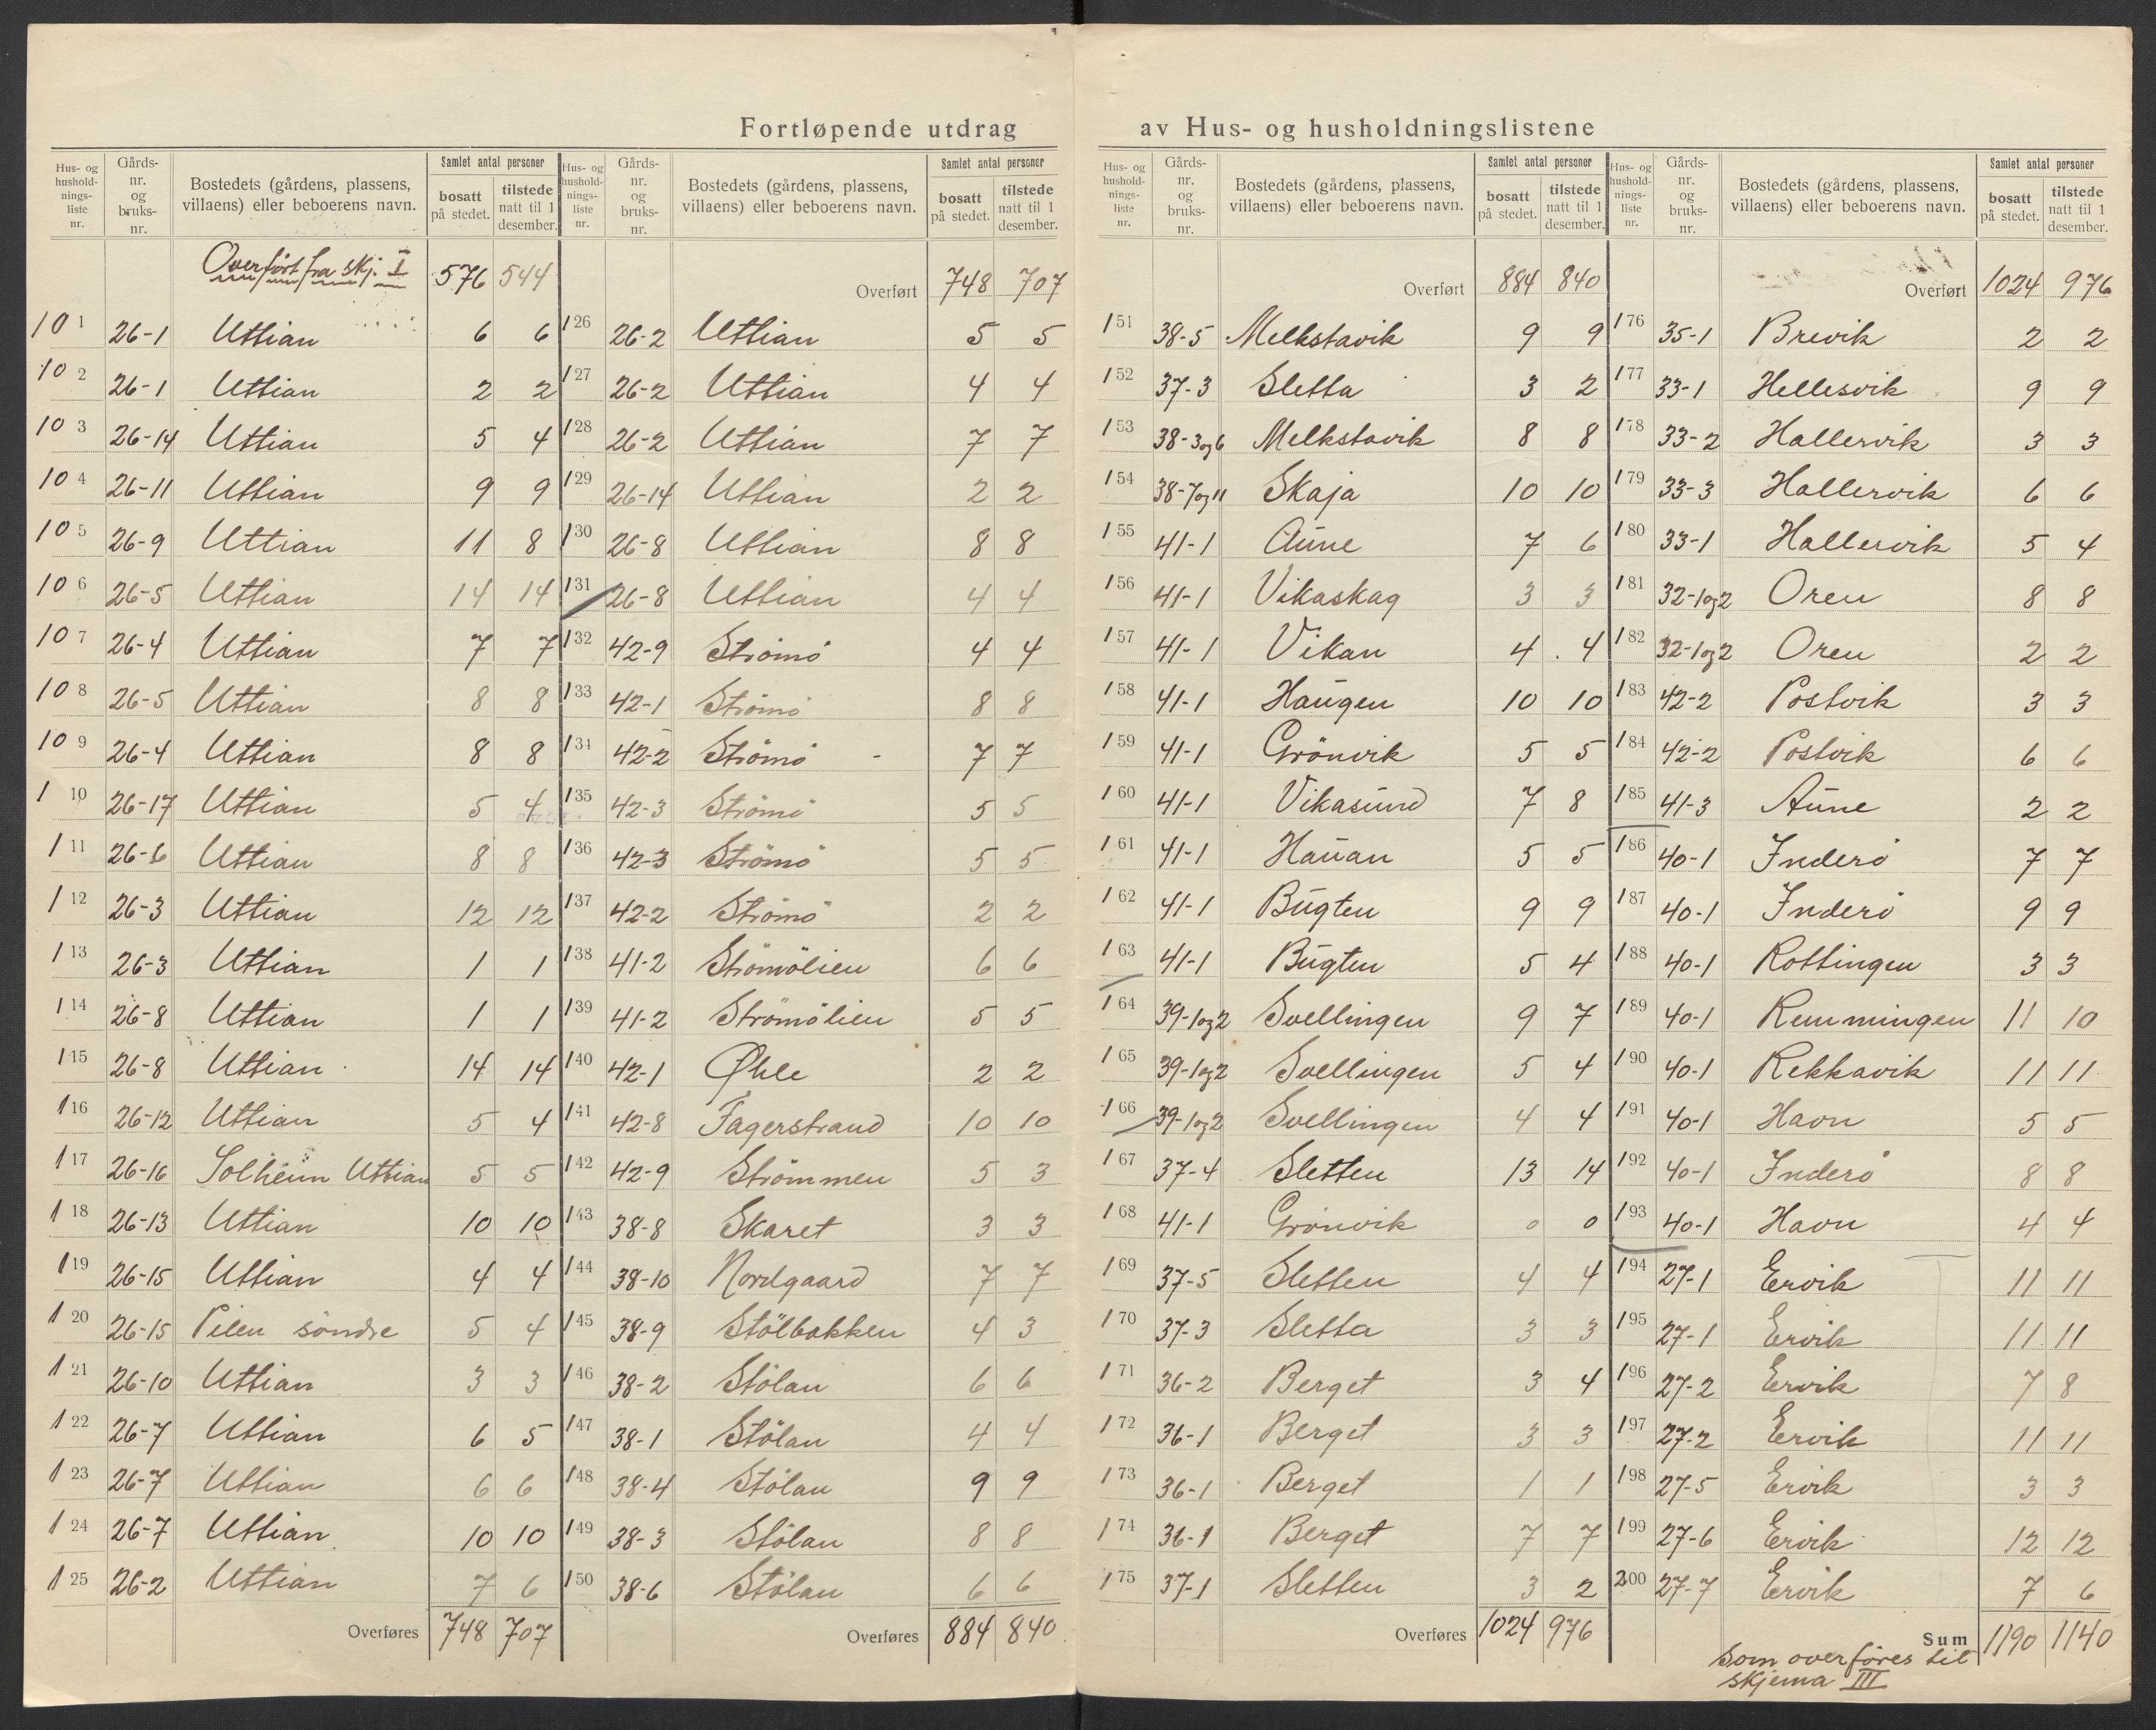 Fortløpende utdrag av Hus- og husholdningslistene
Hus- og husholdnings-liste nr. Gårds-nr. og bruks-nr. Bostedets (gårdens, plassens, villaens) eller beboerens navn. Samlet antal personer bosatt på stedet. tilstede natt til 1 desember.
Overført fra skj. I 576 544
101 26-1 Uttian 6 6
102 26-1 Uttian 2 2
103 26-14 Uttian 5 4
104 26-11 Uttian 9 9
105 26-9 Uttian 11 8
106 26-5 Uttian 14 14
107 26-4 Uttian 7 7
108 26-5 Uttian 8 8
109 26-4 Uttian 8 8
110 26-17 Uttian 5 4
111 26-6 Uttian 8 8
112 26-3 Uttian 12 12
113 26-3 Uttian 1 1
114 26-8 Uttian 1 1
115 26-8 Uttian 14 14
116 26-12 Uttian 5 4
117 26-16 Solheim Uttian 5 5
118 26-13 Uttian 10 10
119 26-15 Uttian 4 4
120 26-15 Pilen söndre 5 4
121 26-10 Uttian 3 3
122 26-7 Uttian 6 5
123 26-7 Uttian 6 6
124 26-7 Uttian 10 10
125 26-2 Uttian 7 6
Overføres 748 707
Hus- og husholdnings-liste nr. Gårds-nr. og bruks-nr. Bostedets (gårdens, plassens, villaens) eller beboerens navn. Samlet antal personer bosatt på stedet. tilstede natt til 1 desember.
Overført 748 707
126 26-2 Uttian 5 5
127 26-2 Uttian 4 4
128 26-2 Uttian 7 7
129 26-14 Uttian 2 2
130 26-8 Uttian 8 8
131 26-8 Uttian 4 4
132 42-9 Strömö 4 4
133 42-1 Strömö 8 8
134 42-2 Strömö - 7 7
135 42-3 Strömö 5 5
136 42-3 Strömö 5 5
137 42-2 Strömö 2 2
138 41-2 Strömölien 6 6
139 41-2 Strömölien 5 5
140 42-1 Øhle 2 2
141 42-8 Fagerstrand 10 10
142 42-9 Strömmen 5 3
143 38-8 Skaret 3 3
144 38-10 Nordgaard 7 7
145 38-9 Stölbakken 4 3
146 38-2 Stölan 6 6
147 38-1 Stölan 4 4
148 38-4 Stölan 9 9
149 38-3 Stölan 8 8
150 38-6 Stölan 6 6
Overføres 884 840
Hus- og husholdnings-liste nr. Gårds-nr. og bruks-nr. Bostedets (gårdens, plassens, villaens) eller beboerens navn. Samlet antal personer bosatt på stedet. tilstede natt til 1 desember.
Overført 884 840
151 38-5 Melkstavik 9 9
152 37-3 Sletta 3 2
153 38-3og6 Melkstavik 8 8
154 38-7og11 Skaja 10 10
155 41-1 Aune 7 6
156 41-1 Vikaskag 3 3
157 41-1 Vikan 4 4
158 41-1 Haugen 10 10
159 41-1 Grönvik 5 5
160 41-1 Vikasund 7 8
161 41-1 Hauan 5 5
162 41-1 Bugten 9 9
163 41-1 Bugten 5 4
164 39-1og2 Svellingen 9 7
165 39-1og2 Svellingen 5 4
166 39-1og2 Svellingen 4 4
167 37-4 Sletten 13 14
168 41-1 Grönvik 0 0
169 37-5 Sletten 4 4
170 37-3 Sletta 3 3
171 36-2 Berget 3 4
172 36-1 Berget 3 3
173 36-1 Berget 1 1
174 36-1 Berget 7 7
175 37-1 Sletten 3 2
Overføres 1024 976
Hus- og husholdnings-liste nr. Gårds-nr. og bruks-nr. Bostedets (gårdens, plassens, villaens) eller beboerens navn. Samlet antal personer bosatt på stedet. tilstede natt til 1 desember.
Overført 1024 976
176 35-1 Brevik 2 2
177 33-1 Hellesvik 9 9
178 33-2 Hallervik 3 3
179 33-3 Hallervik 6 6
180 33-1 Hallervik 5 4
181 32-1og2 Oren 8 8
182 32-1og2 Oren 2 2
183 42-2 Postvik 3 3
184 42-2 Postvik 6 6
185 41-3 Aune 2 2
186 40-1 Inderö 7 7
187 40-1 Inderö 9 9
188 40-1 Rottingen 3 3
189 40-1 Remmingen 11 10
190 40-1 Rekkavik 11 11
191 40-1 Havn 5 5
192 40-1 Inderö 8 8
193 40-1 Havn 4 4
194 27-1 Ervik 11 11
195 27-1 Ervik 11 11
196 27-2 Ervik 7 8
197 27-2 Ervik 11 11
198 27-5 Ervik 3 3
199 27-6 Ervik 12 12
200 27-7 Ervik 7 6
Sum 1190 1140
Som overföres til
skjema III